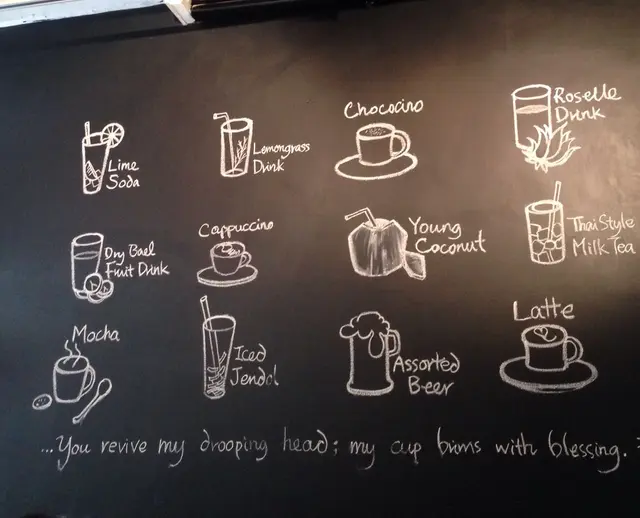 Chococino
Roselle
Drink
Lime
Soda
Lemongrass
Drink
Dry Bael
Fruit Drink
Cappuccino
Young
Coconut
Thai Style
Milk Tea
Mocha
Iced
Jendol
Assorted
Beer
Latte
...You revive my drooping head; my cup brims with blessing.